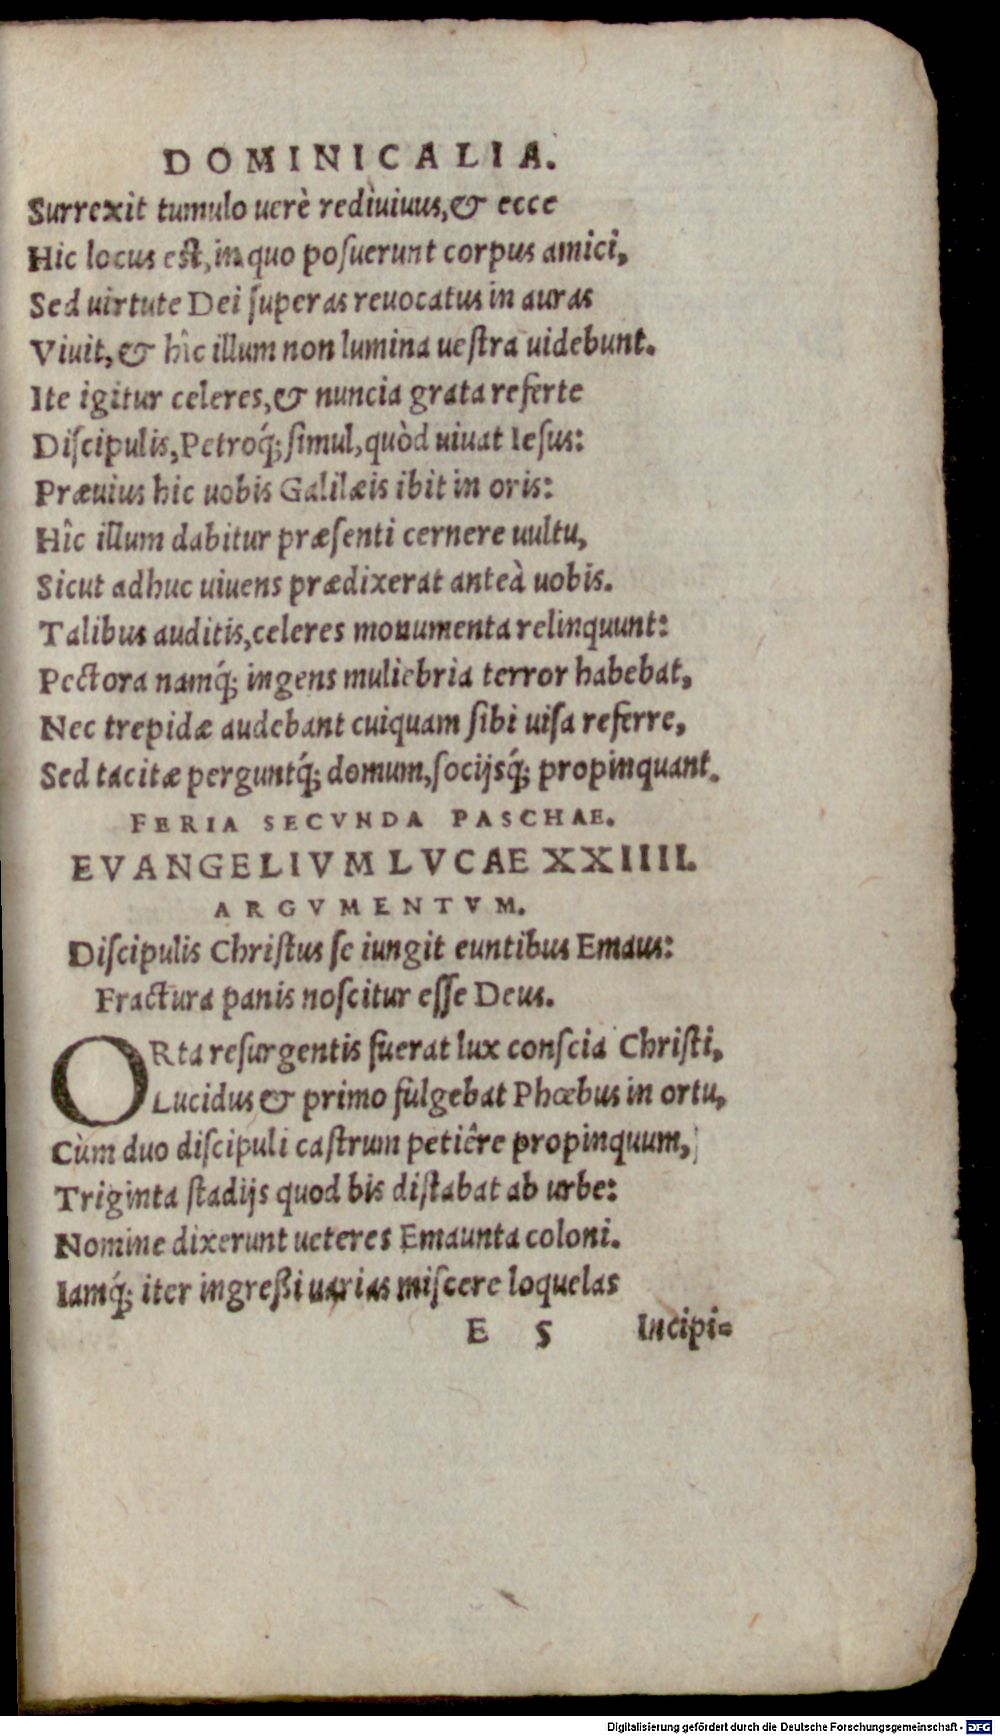 DOMINICALIA.
Surrexit tumulo uerè rediuiuus, & ecce
Hic locus est, in quo poſuerunt corpus amici,
Sed uirtute Dei ſuperas reuocatus in auras
Viuit, & hîc illum non lumina ueſtra uidebunt.
Ite igitur celeres, & nuncia grata referte
Diſcipulis, Petroq́; ſimul, quòd uiuat Ieſus:
Præuius hic uobis Galilæis ibit in oris:
Hîc illum dabitur præſenti cernere uultu,
Sicut adhuc uiuens prædixerat anteà uobis.
Talibus auditis, celeres monumenta relinquunt:
Pectora namq́; ingens muliebria terror habebat,
Nec trepidæ audebant cuiquam ſibi uiſa referre,
Sed tacitæ perguntq́; domum, ſocijsq́; propinquant.
FERIA SECVNDA PASCHAE.
EVANGELIVM LVCAE XXIIII.
ARGVMENTVM.
Diſcipulis Chriſtus ſe iungit euntibus Emaus:
Fractura panis noſcitur eſſe Deus.
ORta reſurgentis fuerat lux conſcia Chriſti,
Lucidus & primo fulgebat Phœbus in ortu,
Cùm duo diſcipuli caſtrum petiêre propinquum,
Triginta ſtadijs quod bis diſtabat ab urbe:
Nomine dixerunt ueteres Emaunta coloni.
Iamq́; iter ingreßi uarias miſcere loquelas
E 5 Incipi=
Digitalisierung gefördert durch die Deutsche Forschungsgemeinschaft - DFG